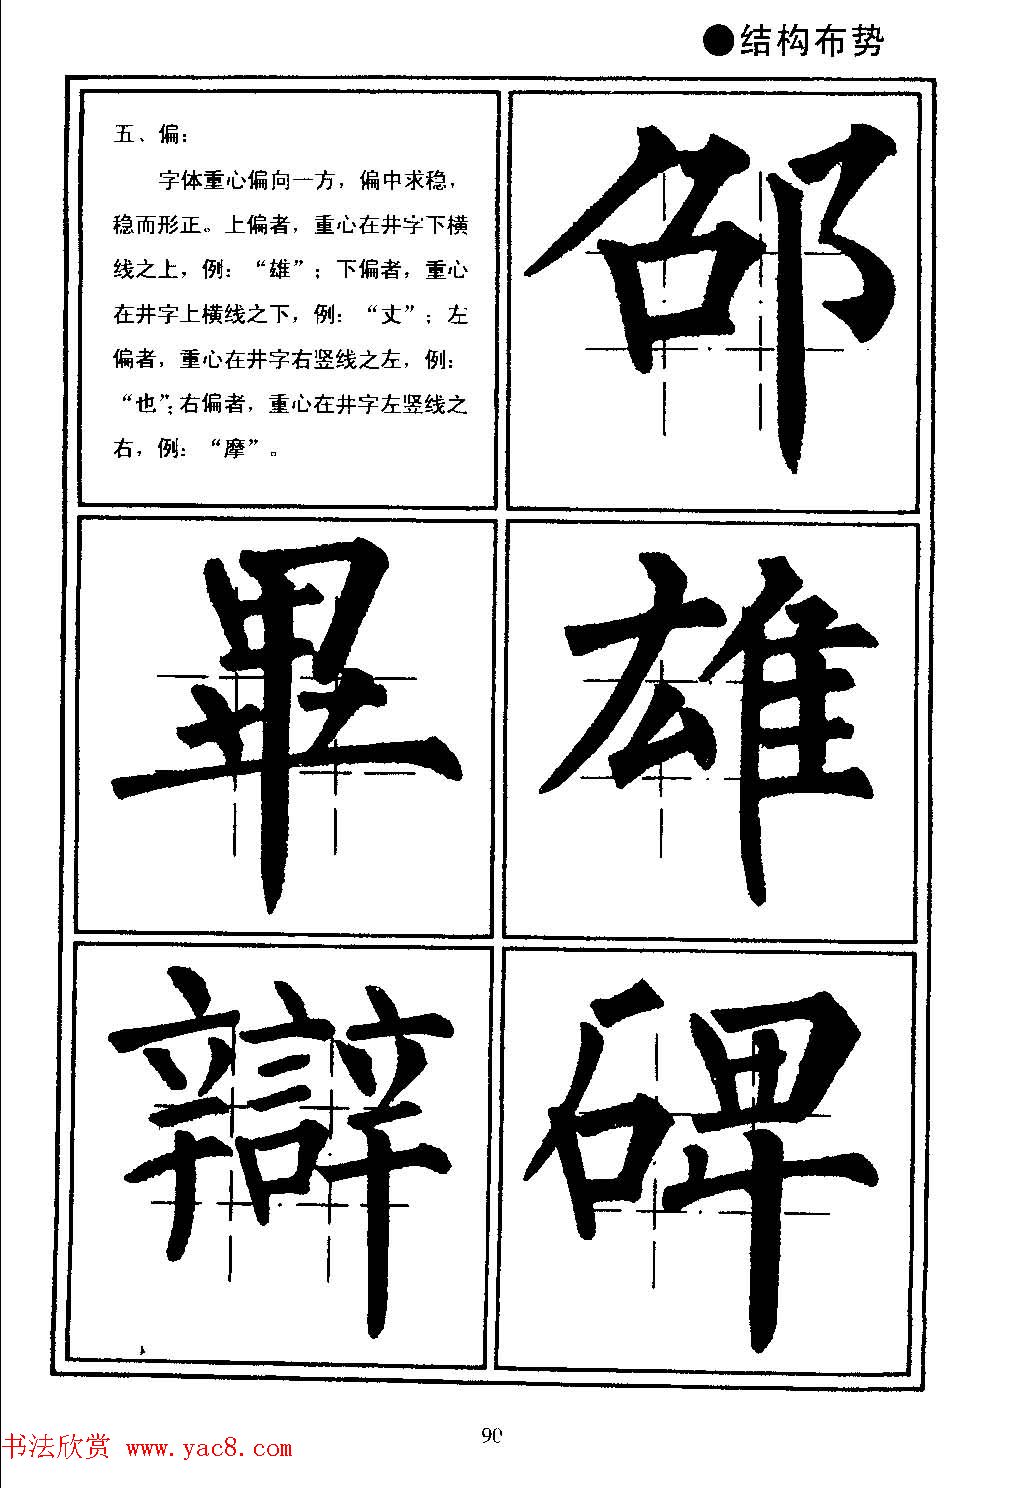 ●结构布势
五、偏：
字体重心偏向一方，偏中求稳，
稳而形正。上偏者，重心在井字下横
线之上，例：“雄”；下偏者，重心
在井字上横线之下，例：“丈”；左
偏者，重心在井字右竖线之左，例：
“也”；右偏者，重心在井字左竖线之
右，例：“摩”。
邵
畢
雄
辯
碑
90
书法欣赏 www.yac8.com